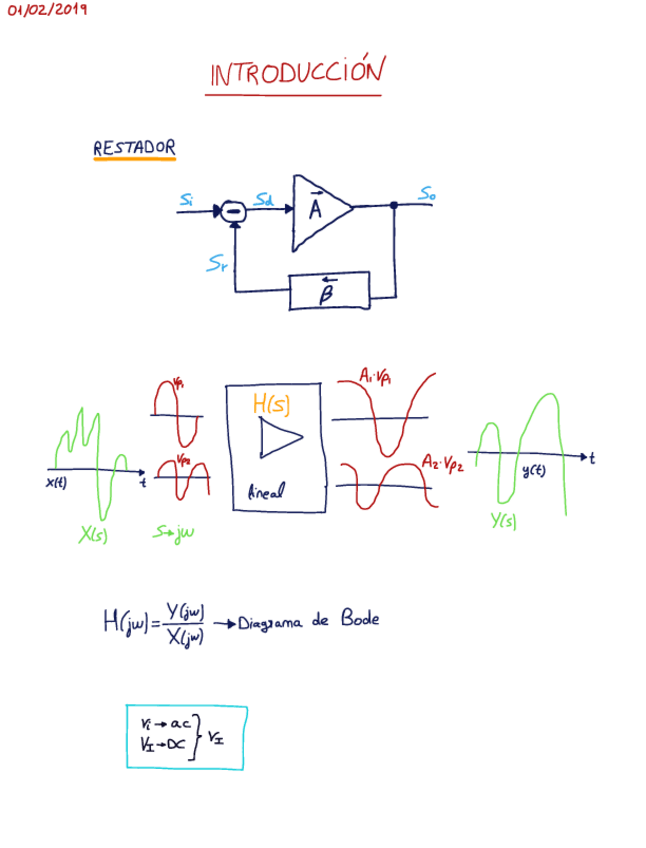 01/02/2019
INTRODUCCIÓN
RESTADOR
Si
Sd
A
So
Sr
β
Vp1
H(s)
A1·Vp1
x(t)
t
Vp2
lineal
A2·Vp2
y(t)
t
X(s)
S→jw
Y(s)
H(jw)=Y(jw)/X(jw) →Diagrama de Bode
Vi→ac
VI→DC
} VI